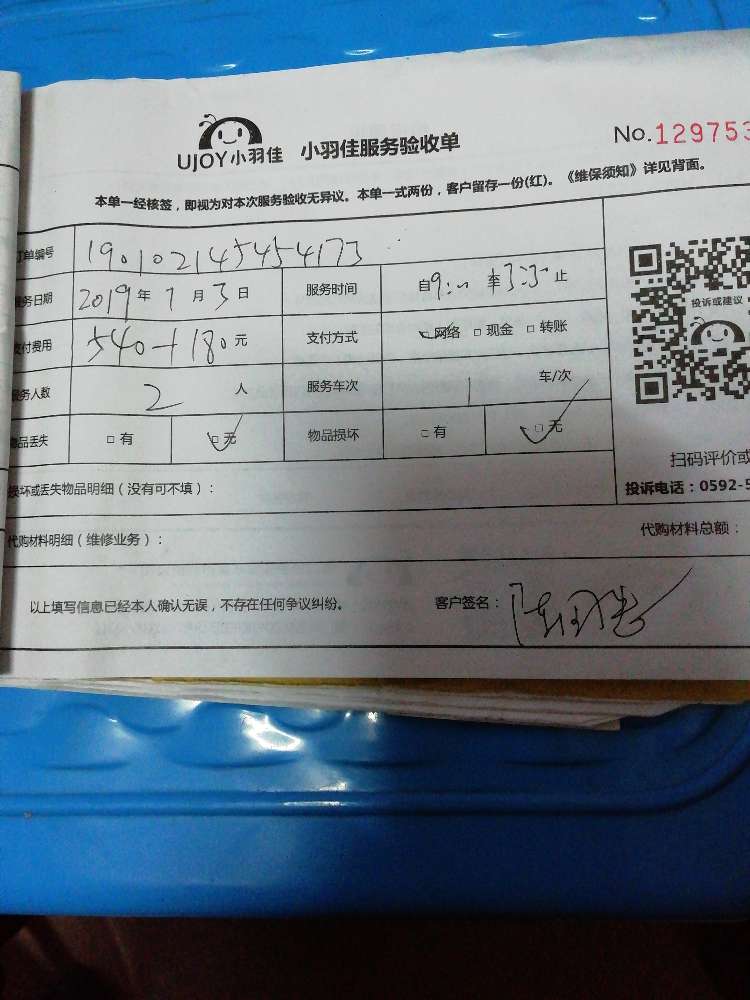 UJOY小羽佳 小羽佳服务验收单 No.129753
本单一经核签，即视为对本次服务验收无异议。本单一式两份，客户留存一份(红)。《维保须知》详见背面。
订单编号 190102145454173
服务日期 2019年1月3日 服务时间 自9: 至 止
付费用 540+180元 支付方式 □网络 □现金 □转账
服务人数 2 人 服务车次 1 车/次
物品丢失 □有 □无 物品损坏 □有 □无
投诉或建议
损坏或丢失物品明细（没有可不填）：
扫码评价或
投诉电话：0592-5
代购材料明细（维修业务）： 代购材料总额：
以上填写信息已经本人确认无误，不存在任何争议纠纷。 客户签名：